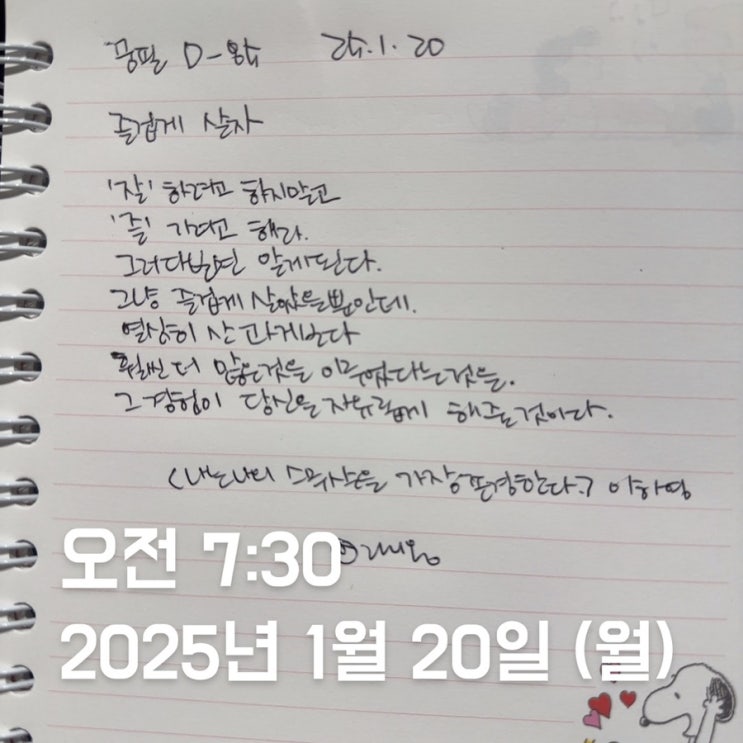 꿈필 D- 25.1.20
즐겁게 살자
'잘' 하려고 하지말고
'즐' 기려고 해라.
그러다보면 알게된다.
그냥 즐겁게 살았을뿐인데.
열심히 산 과거보다
훨씬 더 많은것을 이루었다는것을.
그 경험이 당신을 자유롭게 해주는것이다.
<나는 나의 스무살을 가장 존경한다> 이하영
오전 7:30
2025년 1월 20일 (월)